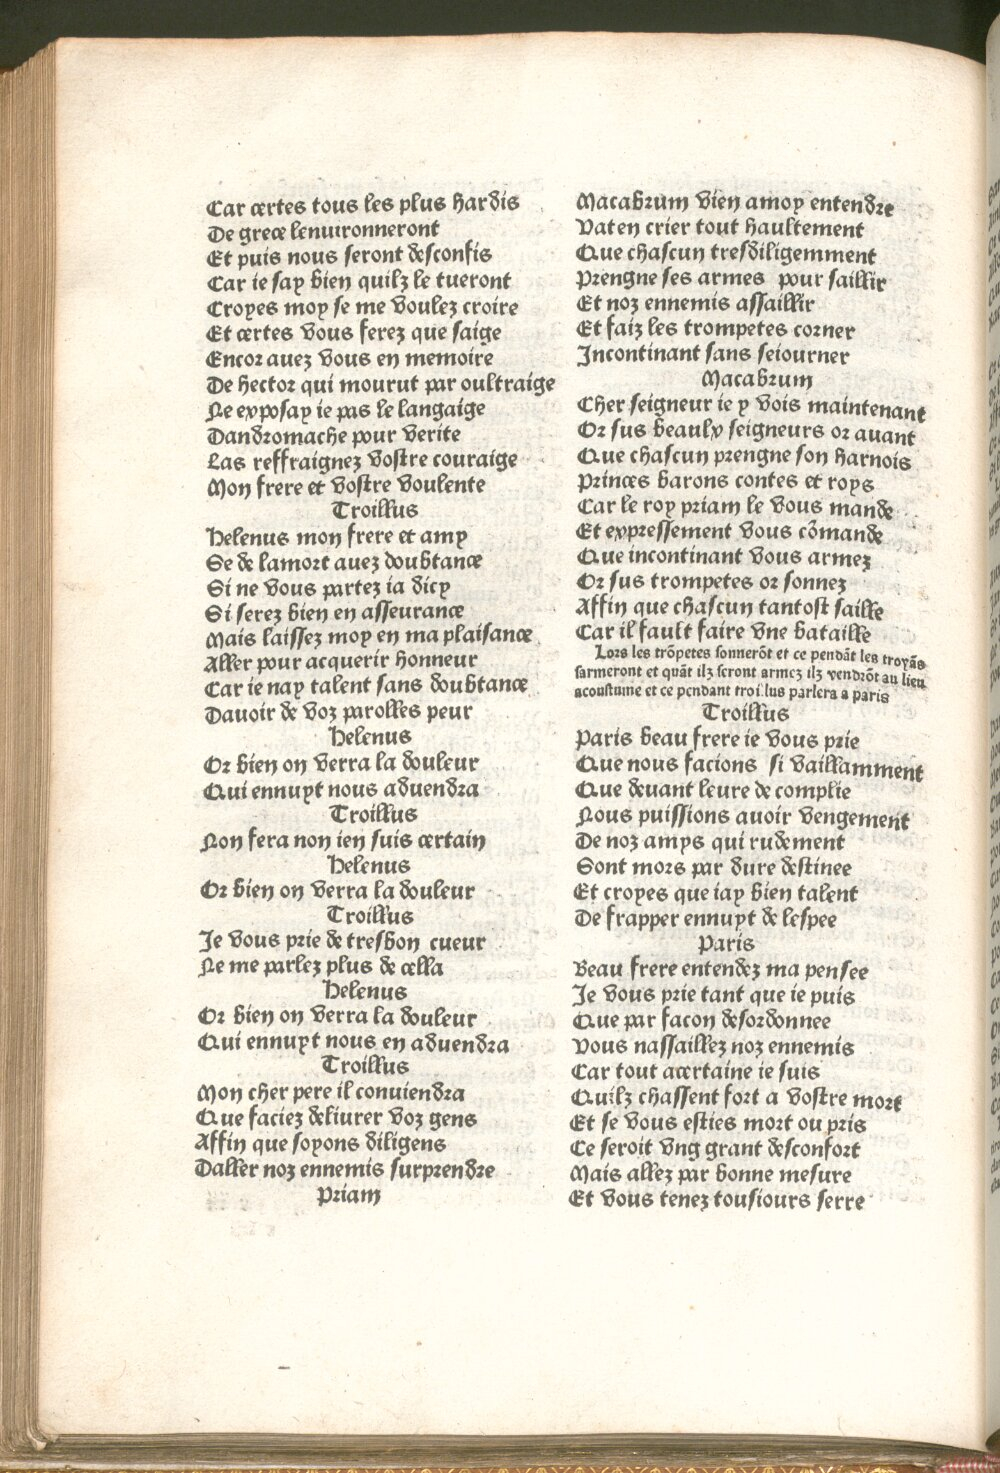 Car certes tous les plus hardis
De grece lenuironneront
Et puis nous seront desconfis
Car ie say bien quilz le tueront
Croyes moy se me voulez croire
Et certes vous ferez que saige
Encor auez vous en memoire
De hector qui mourut par oultraige
Ne exposay ie pas le langaige
Dandromache pour verite
Las reffraignez vostre couraige
Mon frere et vostre voulente
Troillus
Helenus mon frere et amy
Se de lamort auez doubtance
Si ne vous partez ia dicy
Si serez bien en asseurance
Mais laissez moy en ma plaisance
Aller pour acquerir honneur
Car ie nay talent sans doubtance
Dauoir de voz parolles peur
Helenus
Or bien on verra la douleur
Qui ennuyt nous aduendra
Troillus
Non fera non ien suis certain
Helenus
Or bien on verra la douleur
Troillus
Je vous prie de tresbon cueur
Ne me parlez plus de cella
Helenus
Or bien on verra la douleur
Qui ennuyt nous en aduendra
Troillus
Mon cher pere il conuiendra
Que faciez deliurer voz gens
Affin que soyons diligens
Daller noz ennemis surprendre
Priam
Macabrum vien amoy entendre
Vaten crier tout haultement
Que chascun tresdiligemment
Prengne ses armes pour saillir
Et noz ennemis assaillir
Et faiz les trompetes corner
Incontinant sans seiourner
Macabrum
Cher seigneur ie y vois maintenant
Or sus beaulx seigneurs or auant
Que chascun prengne son harnois
Princes barons contes et roys
Car le roy priam le vous mande
Et expressement vous cõmande
Que incontinant vous armez
Or sus trompetes or sonnez
Affin que chascun tantost saille
Car il fault faire vne bataille
Lors les trõpetes sonnerõt et ce pendãt les troyãs
sarmeront et quãt ilz seront armez ilz vendrõt au lieu
acoustume et ce pendant troillus parlera a paris
Troillus
Paris beau frere ie vous prie
Que nous facions si vaillamment
Que deuant leure de complie
Nous puissions auoir vengement
De noz amys qui rudement
Sont mors par dure destinee
Et croyes que iay bien talent
De frapper ennuyt de lespee
Paris
Beau frere entendez ma pensee
Je vous prie tant que ie puis
Que par facon desordonnee
Vous nassaillez noz ennemis
Car tout acertaine ie suis
Quilz chassent fort a vostre mort
Et se vous esties mort ou pris
Ce seroit vng grant desconfort
Mais allez par bonne mesure
Et vous tenez tousiours serre